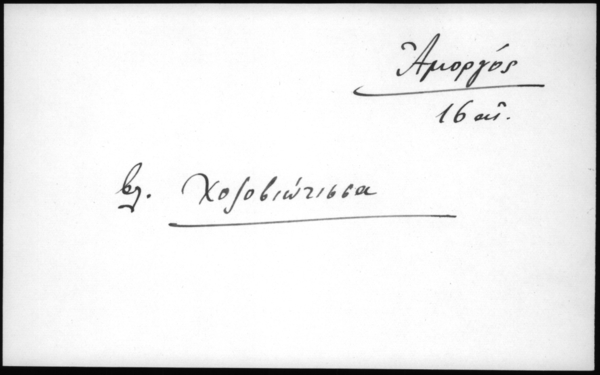 Ἀμοργός
16 αἰ.
βλ. Χοζοβιώτισσα